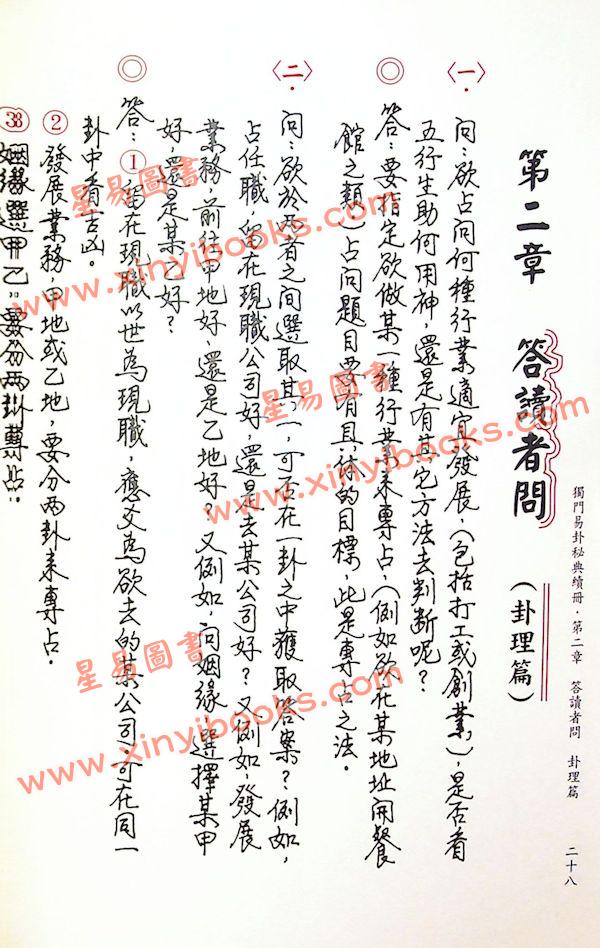 獨門易卦秘典續冊·第二章 答讀者問 卦理篇 二十八
第二章 答讀者問(卦理篇)
〈一.〉問:欲占問何種行業適宜發展,(包括打工或創業,)是否看
五行生助何用神,還是有其它方法去判斷呢?
◎答:要指定欲做某一種行業來專占,(例如欲在某地址開餐
館之類)占問題目要有具体的目標,此是專占之法。
〈二.〉問:欲於兩者之間選取其一,可否在一卦之中獲取答案?例如,
占任職,留在現職公司好,還是去某公司好?又例如,發展
業務,前往甲地好,還是乙地好?又例如,問姻緣,選擇某甲
好,還是某乙好?
◎答:①留在現職以世為現職,應爻為欲去的某公司,可在同一
卦中看吉凶。
②發展業務,甲地或乙地,要分兩卦來專占。
③姻緣選甲乙,要分兩卦專占。
星易圖書
www.xinyibooks.com
星易圖書
www.xinyibooks.com
星易圖書
www.xinyibooks.com